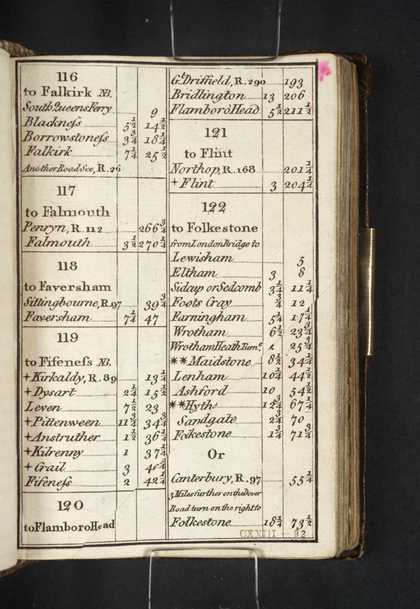 116
to Falkirk NB.
South Queens Ferry 9
Blackneſs 5½ 14½
Borrowstoneſs 3¾ 18¼
Falkirk 7¼ 25½
Another Road See, R. 26
117
to Falmouth
Penryn, R. 112 266¾
Falmouth 3½ 270¼
118
to Faversham
Sittingbourne, R. 97 39¾
Faversham 7¼ 47
119
to Fifeneſs NB.
+Kirkaldy, R. 89 13¼
+Dysart 2¼ 15½
Leven 7½ 23
+Pittenween 11¾ 34¾
+Anstruther 1½ 36¼
+Kilrenny 1 37¼
+Crail 3 40¼
Fifeneſs 2 42¼
120
to Flamboro Head
Gt. Driffield, R. 290 193
Bridlington 13 206
Flamboro Head 5½ 211½
121
to Flint
Northop, R. 168 201¼
+Flint 3 204¼
122
to Folkestone
from London Bridge to
Lewisham 5
Eltham 3 8
Sidcup or Sedcomb 3¼ 11¼
Foots Cray ¾ 12
Farningham 5¼ 17¼
Wrotham 6½ 23¾
Wrotham Heath Turnp. 2 25¾
**Maidstone 8½ 34¼
Lenham 10¼ 44½
Ashford 10 54½
**Hyth 12¾ 67¼
Sandgate 2¾ 70
Folkestone 1¼ 71¼
Or
Canterbury, R. 97 55¼
3 Miles further on the Dover
Road turn on the right to
Folkestone 18¼ 73½